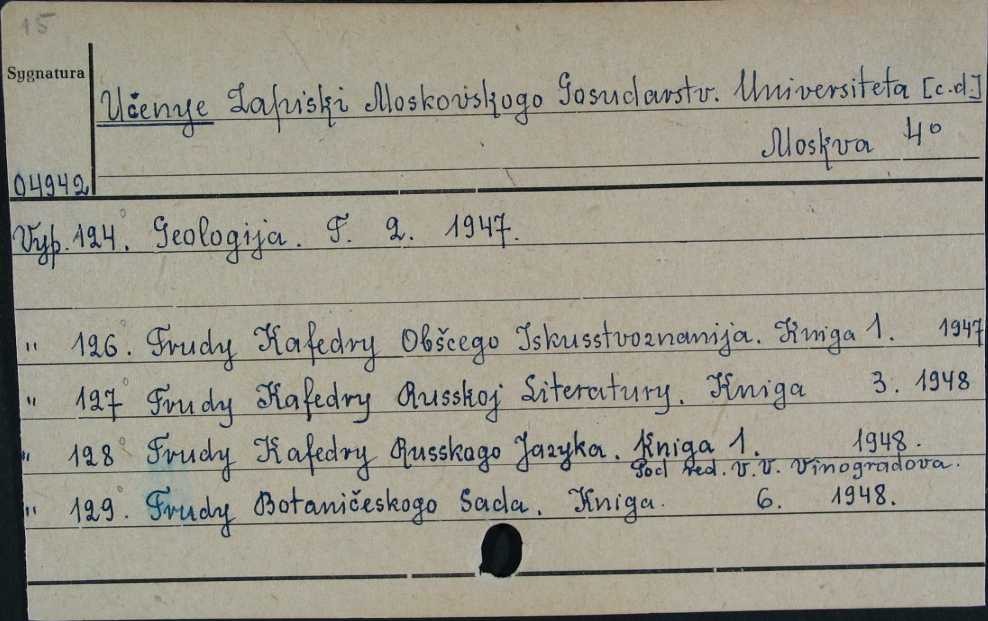 15
Sygnatura
Učenye Zapiski Moskovskogo Gosudarstv. Universiteta [c.d.]
Moskva 4°
04942
Vyp. 124.° Geologija. T. 2. 1947.
" 126.° Trudy Kafedry Obščego Iskusstvoznanija. Kniga 1. 1947
" 127° Trudy Kafedry Russkoj Literatury. Kniga 3. 1948
" 128° Trudy Kafedry Russkago Jazyka. Kniga 1. 1948.
Pod red. V. V. Vinogradova.
" 129.° Trudy Botaničeskogo Sada. Kniga. 6. 1948.